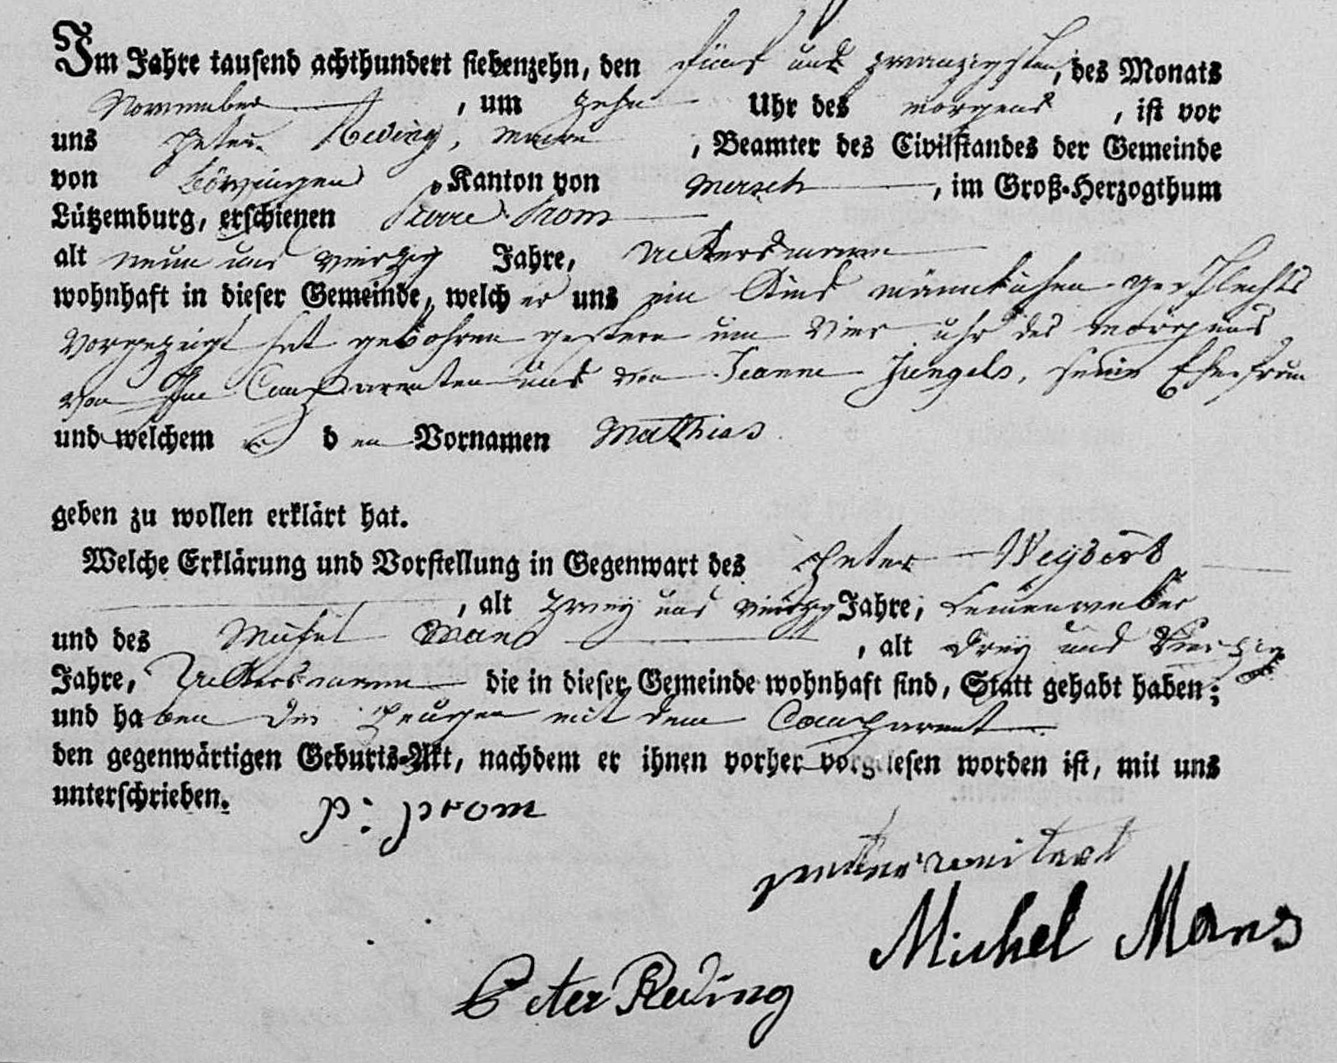 Im Jahre tausend achthundert siebenzehn, den fünf und zwanzigsten, des Monats
November, um zehn Uhr des morgens, ist vor
uns Peter Reding, maire, Beamter des Civilstandes der Gemeinde
von Kanton von Mersch, im Groß-Herzogthum
Lützemburg, erschienen Pierre Prom
alt neun und vierzig Jahre, Ackersmann
wohnhaft in dieser Gemeinde, welcher uns ein Kind männlichen geschlechts
vorgezeigt hat gebohren gestern um vier uhr des morgens
von ihm Comparenten und von Jeanne Jungels, seine Ehefrau
und welchem er den Vornamen Mathias
geben zu wollen erklärt hat.
Welche Erklärung und Vorstellung in Gegenwart des Peter Weydert
, alt zwey und vierzig Jahre, Leinenweber
und des Michel Mans, alt drey und vierzig
Jahre, Ackersmann die in dieser Gemeinde wohnhaft sind, Statt gehabt haben;
und haben die Zeugen mit dem Comparent
den gegenwärtigen Geburts-Akt, nachdem er ihnen vorher vorgelesen worden ist, mit uns
unterschrieben. p: prom
weitert
Michel Mans
Peter Reding